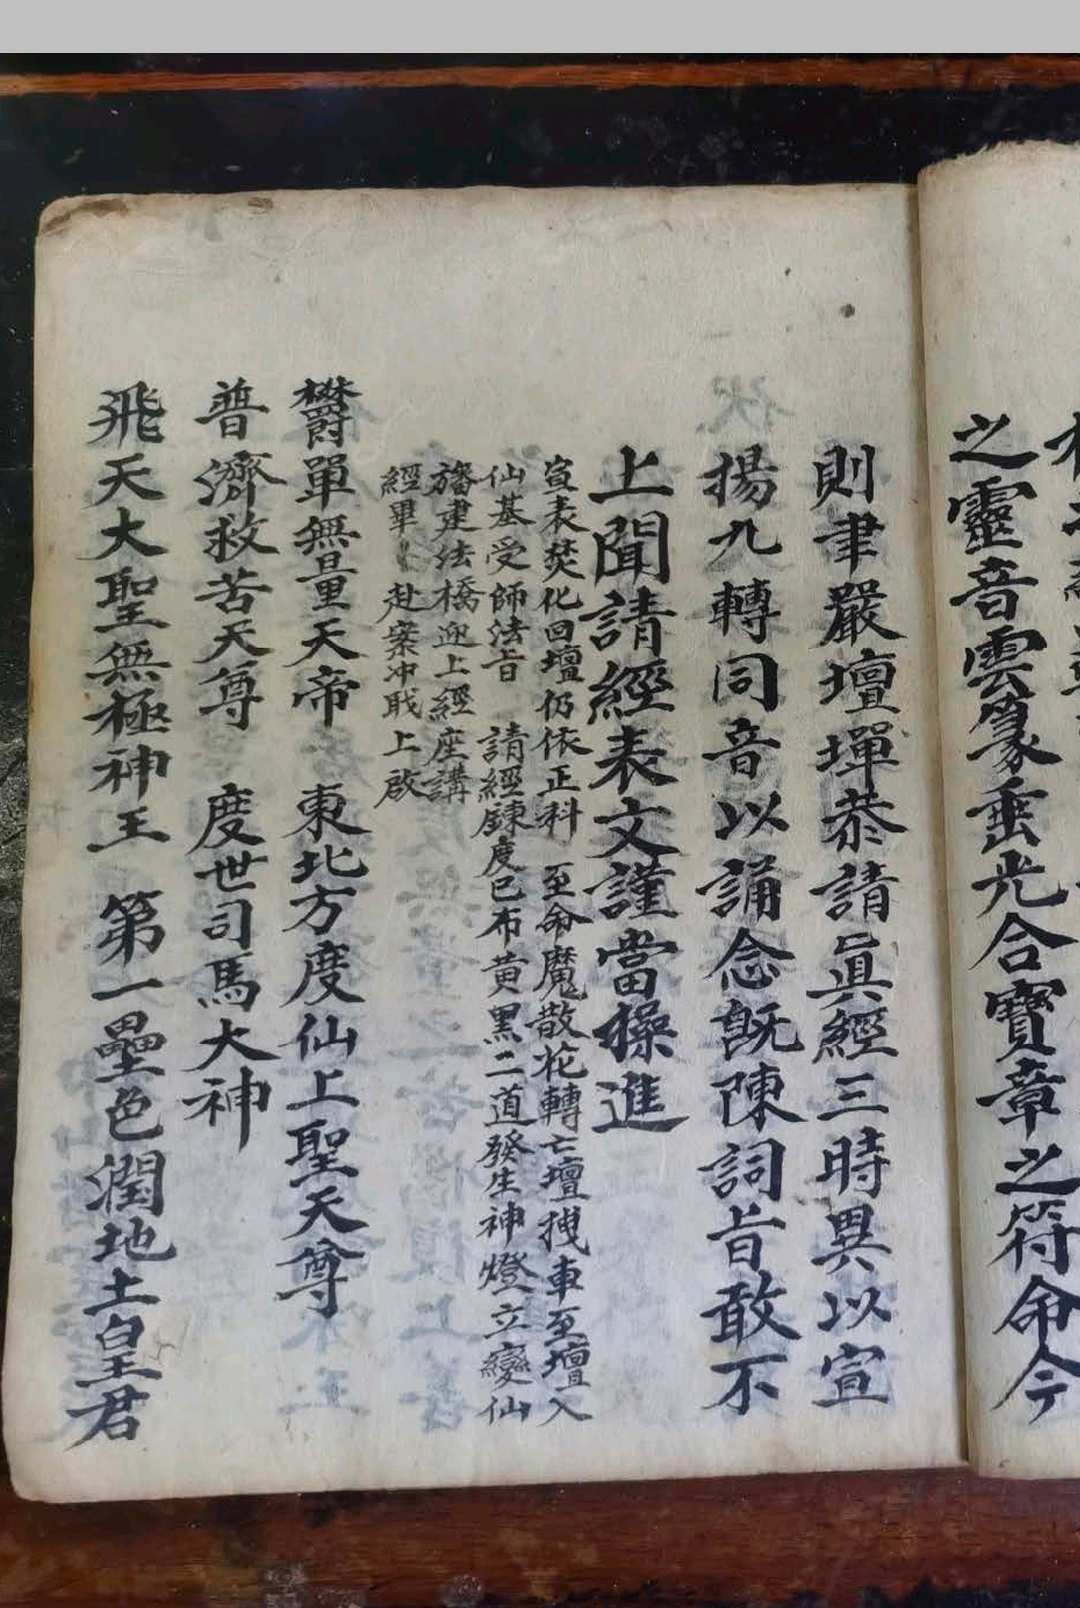 之靈音雲篆垂光合寶章之符命今
則聿嚴壇墠恭請眞經三時異以宣
揚九轉同音以誦念旣陳詞旨敢不
上聞請經表文謹當操進
宣表焚化回壇仍依正科 至命魔散花轉亡壇拽車至壇入
仙基受師法旨 請經鍊度已布黃黑二道發生神燈立變仙
旛建法橋迎上經座講
經畢 赴案冲戝上啟
欎單無量天帝 東北方度仙上聖天尊
普濟救苦天尊 度世司馬大神
飛天大聖無極神王 第一壘色潤地土皇君